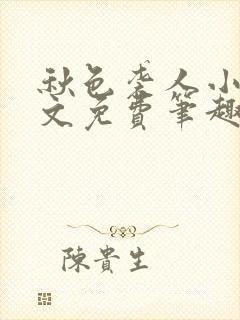 秋色老人小
文免費筆趣
陳貴生